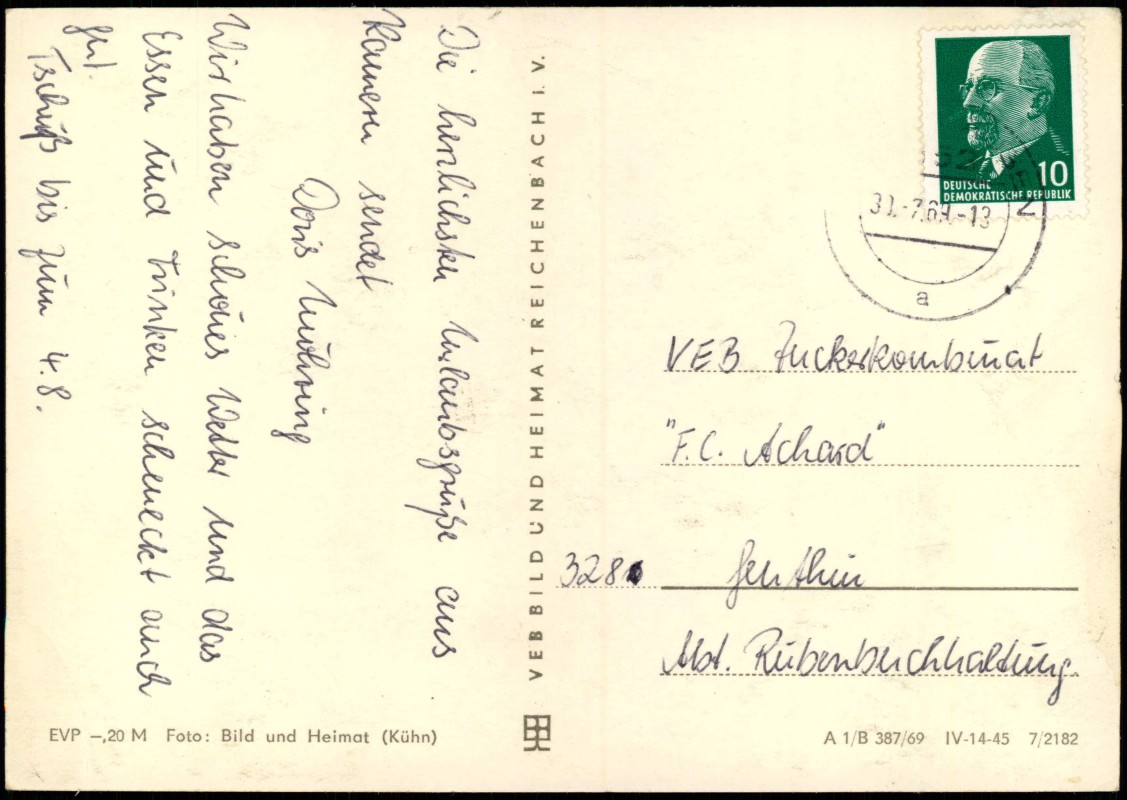 Die herzlichsten Urlaubsgrüße aus
Kamern sendet
Doris
Wir haben schönes Wetter und das
Essen und Trinken schmeckt auch
gut.
Tschüß bis zum 4.8.
VEB BILD UND HEIMAT REICHENBACH I. V.
10
DEUTSCHE
DEMOKRATISCHE REPUBLIK
31.-7.69.-13
2
a
VEB Zuckerkombinat
"F.C. Achard"
3280 Genthin
Abt. Rübenbuchhaltung.
EVP –,20 M Foto: Bild und Heimat (Kühn)
A 1/B 387/69 IV-14-45 7/2182